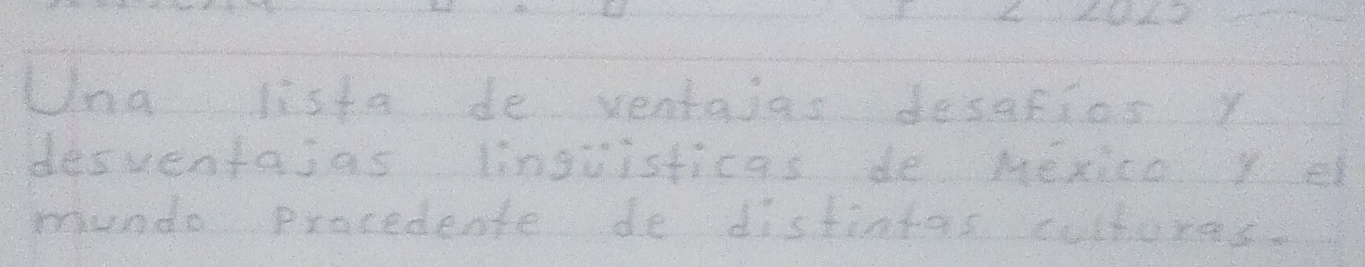 2 2025
Una lista de ventajas desafíos y
desventajas lingüisticas de México y el
mundo Procedente de distintas culturas.